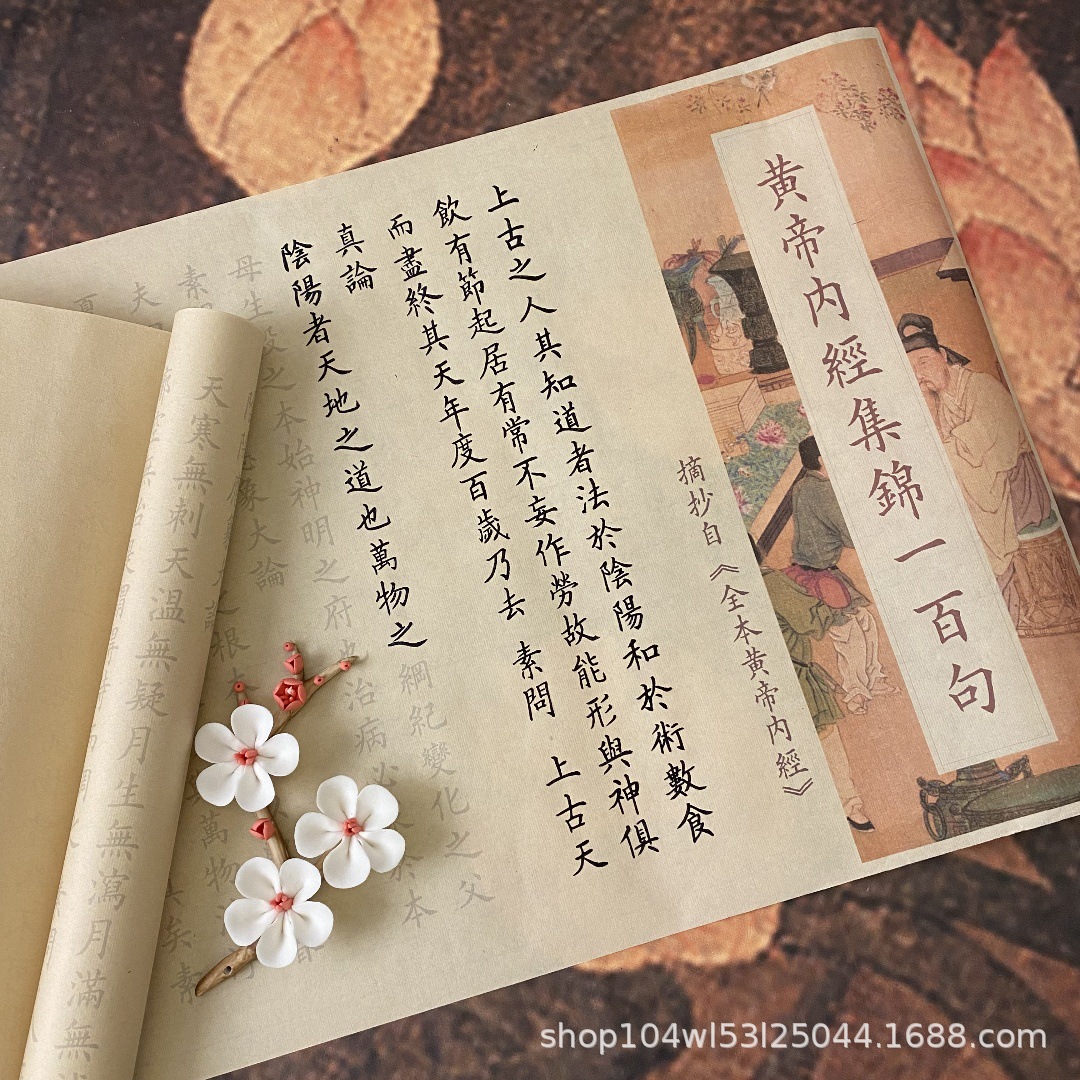 黄帝内經集錦一百句
摘抄自《全本黄帝内經》
上古之人其知道者法於陰陽和於術數食
飲有節起居有常不妄作勞故能形與神俱
而盡終其天年度百歲乃去 素問 上古天
真論
陰陽者天地之道也萬物之綱紀變化之父
母生殺之本始神明之府也治病必 本
素 象大論
夫 之根本 萬物
天寒無刺天温無疑月生無瀉月滿無
shop104wl53l25044.1688.com